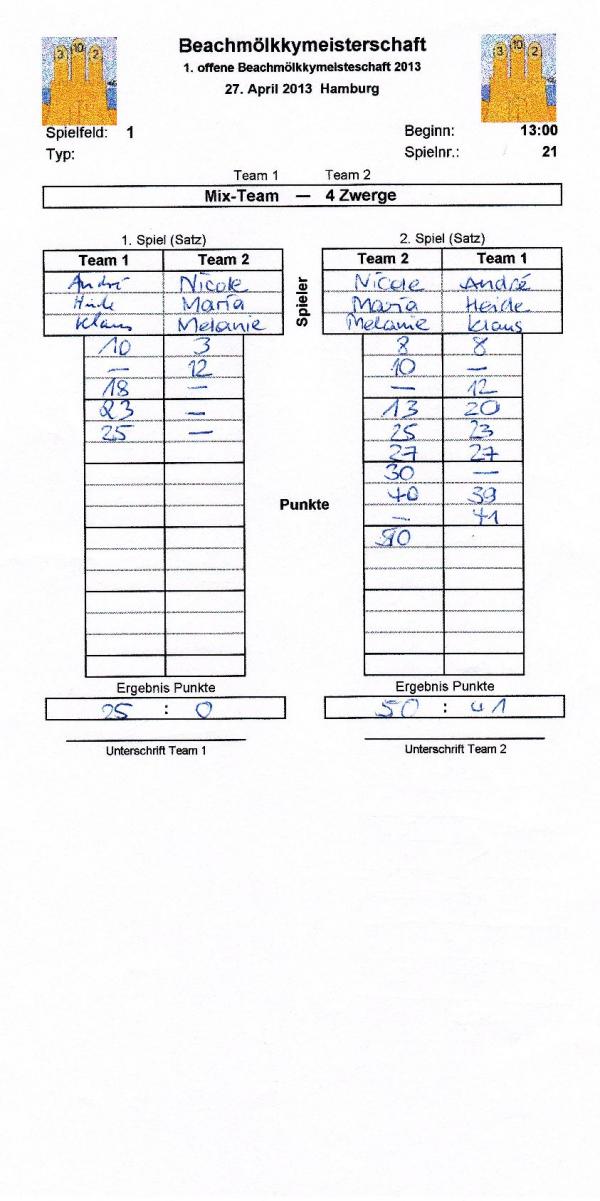 3 10 2
3 10 2
Beachmölkkymeisterschaft
1. offene Beachmölkkymeisteschaft 2013
27. April 2013 Hamburg
Spielfeld: 1
Beginn: 13:00
Typ:
Spielnr.: 21
Team 1 Team 2
Mix-Team — 4 Zwerge
1. Spiel (Satz)
Team 1 Team 2
André Nicole
Heide Maria
Klaus Melanie
10 3
— 12
18 —
23 —
25 —
Ergebnis Punkte
25 : 0
Unterschrift Team 1
Spieler
Punkte
2. Spiel (Satz)
Team 2 Team 1
Nicole André
Maria Heide
Melanie Klaus
8 8
10 —
— 12
13 20
25 23
27 27
30 —
40 39
— 41
50
Ergebnis Punkte
50 : 41
Unterschrift Team 2